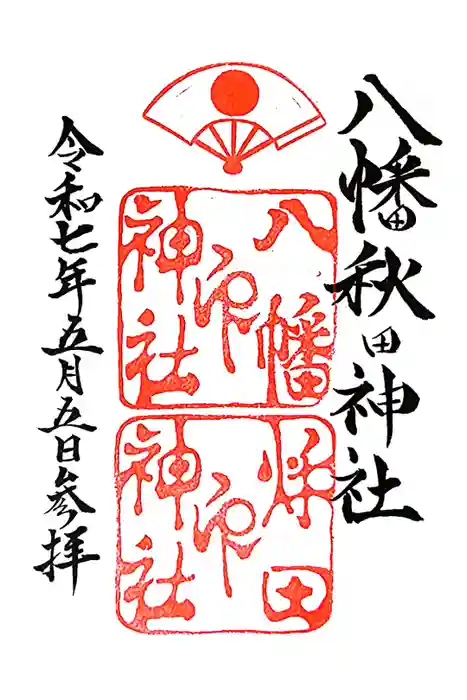 八幡秋田神社
八幡
印
神社
秌田
印
神社
令和七年五月五日参拝